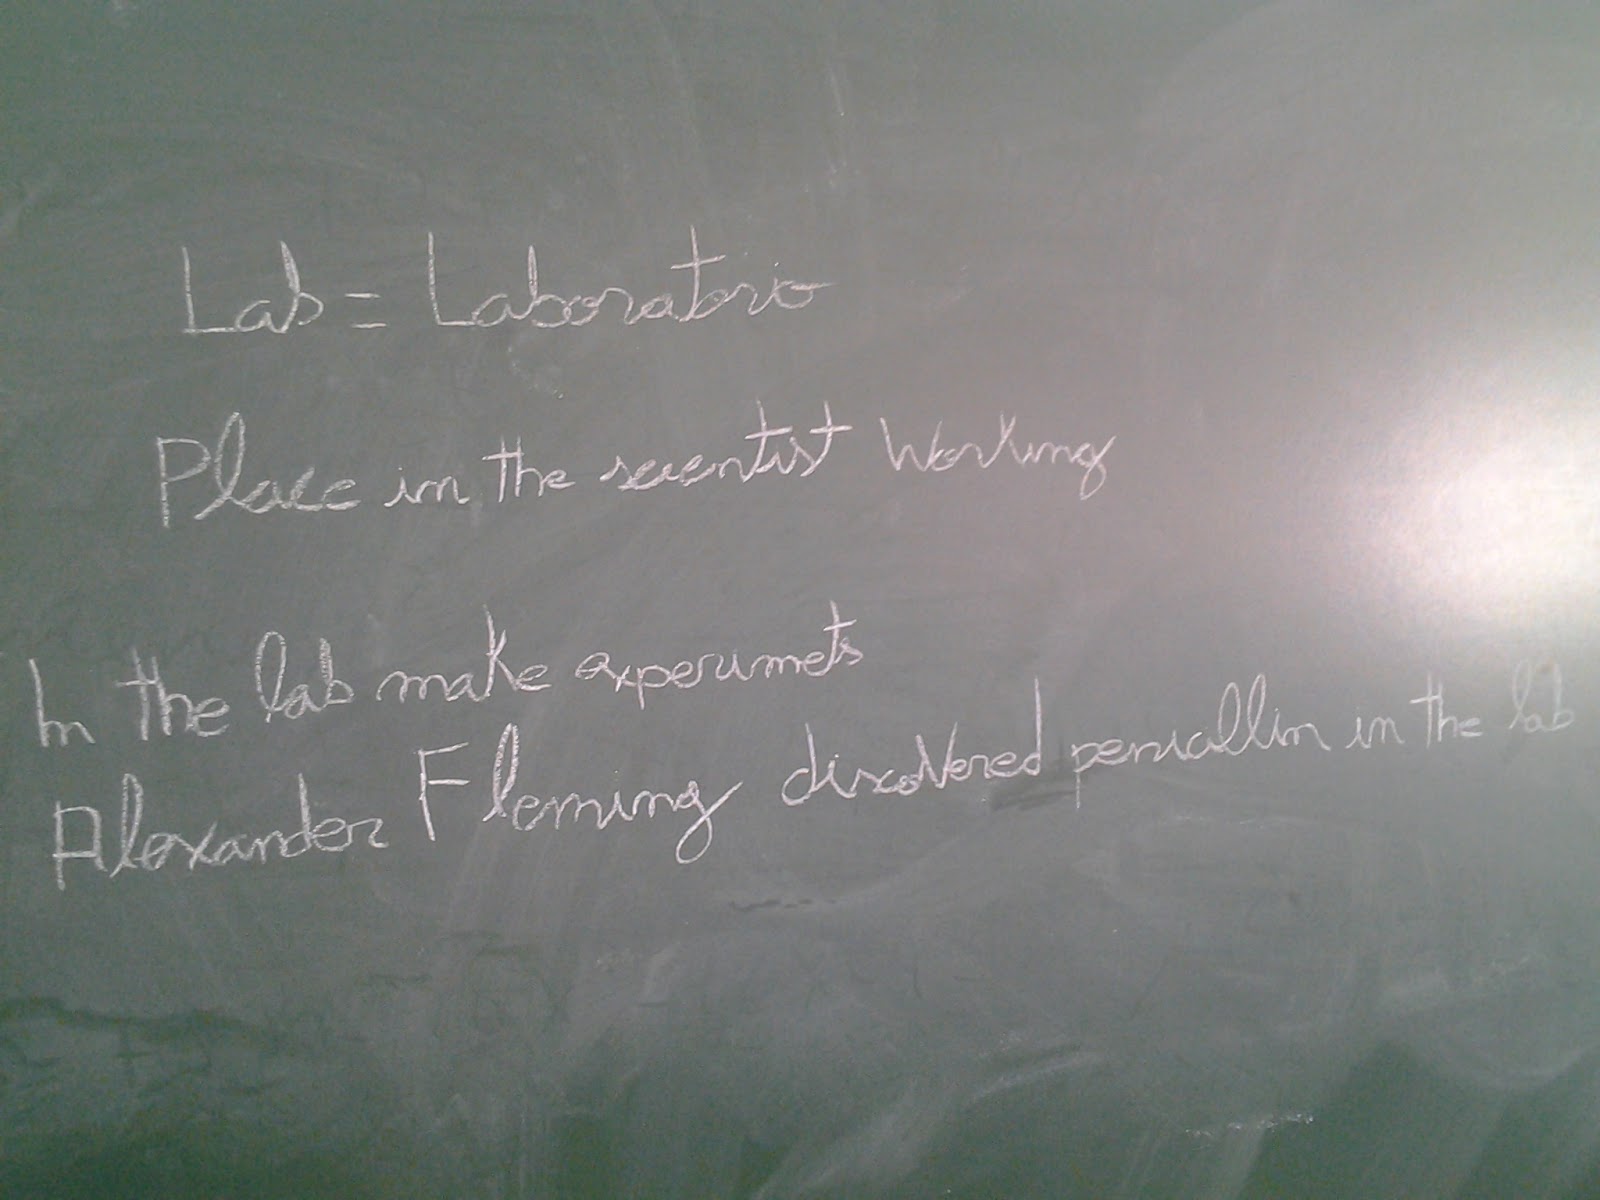 Lab = Laboratorio
Place in the scientist working
In the lab make experimets
Alexander Fleming discovered penicallin in the lab